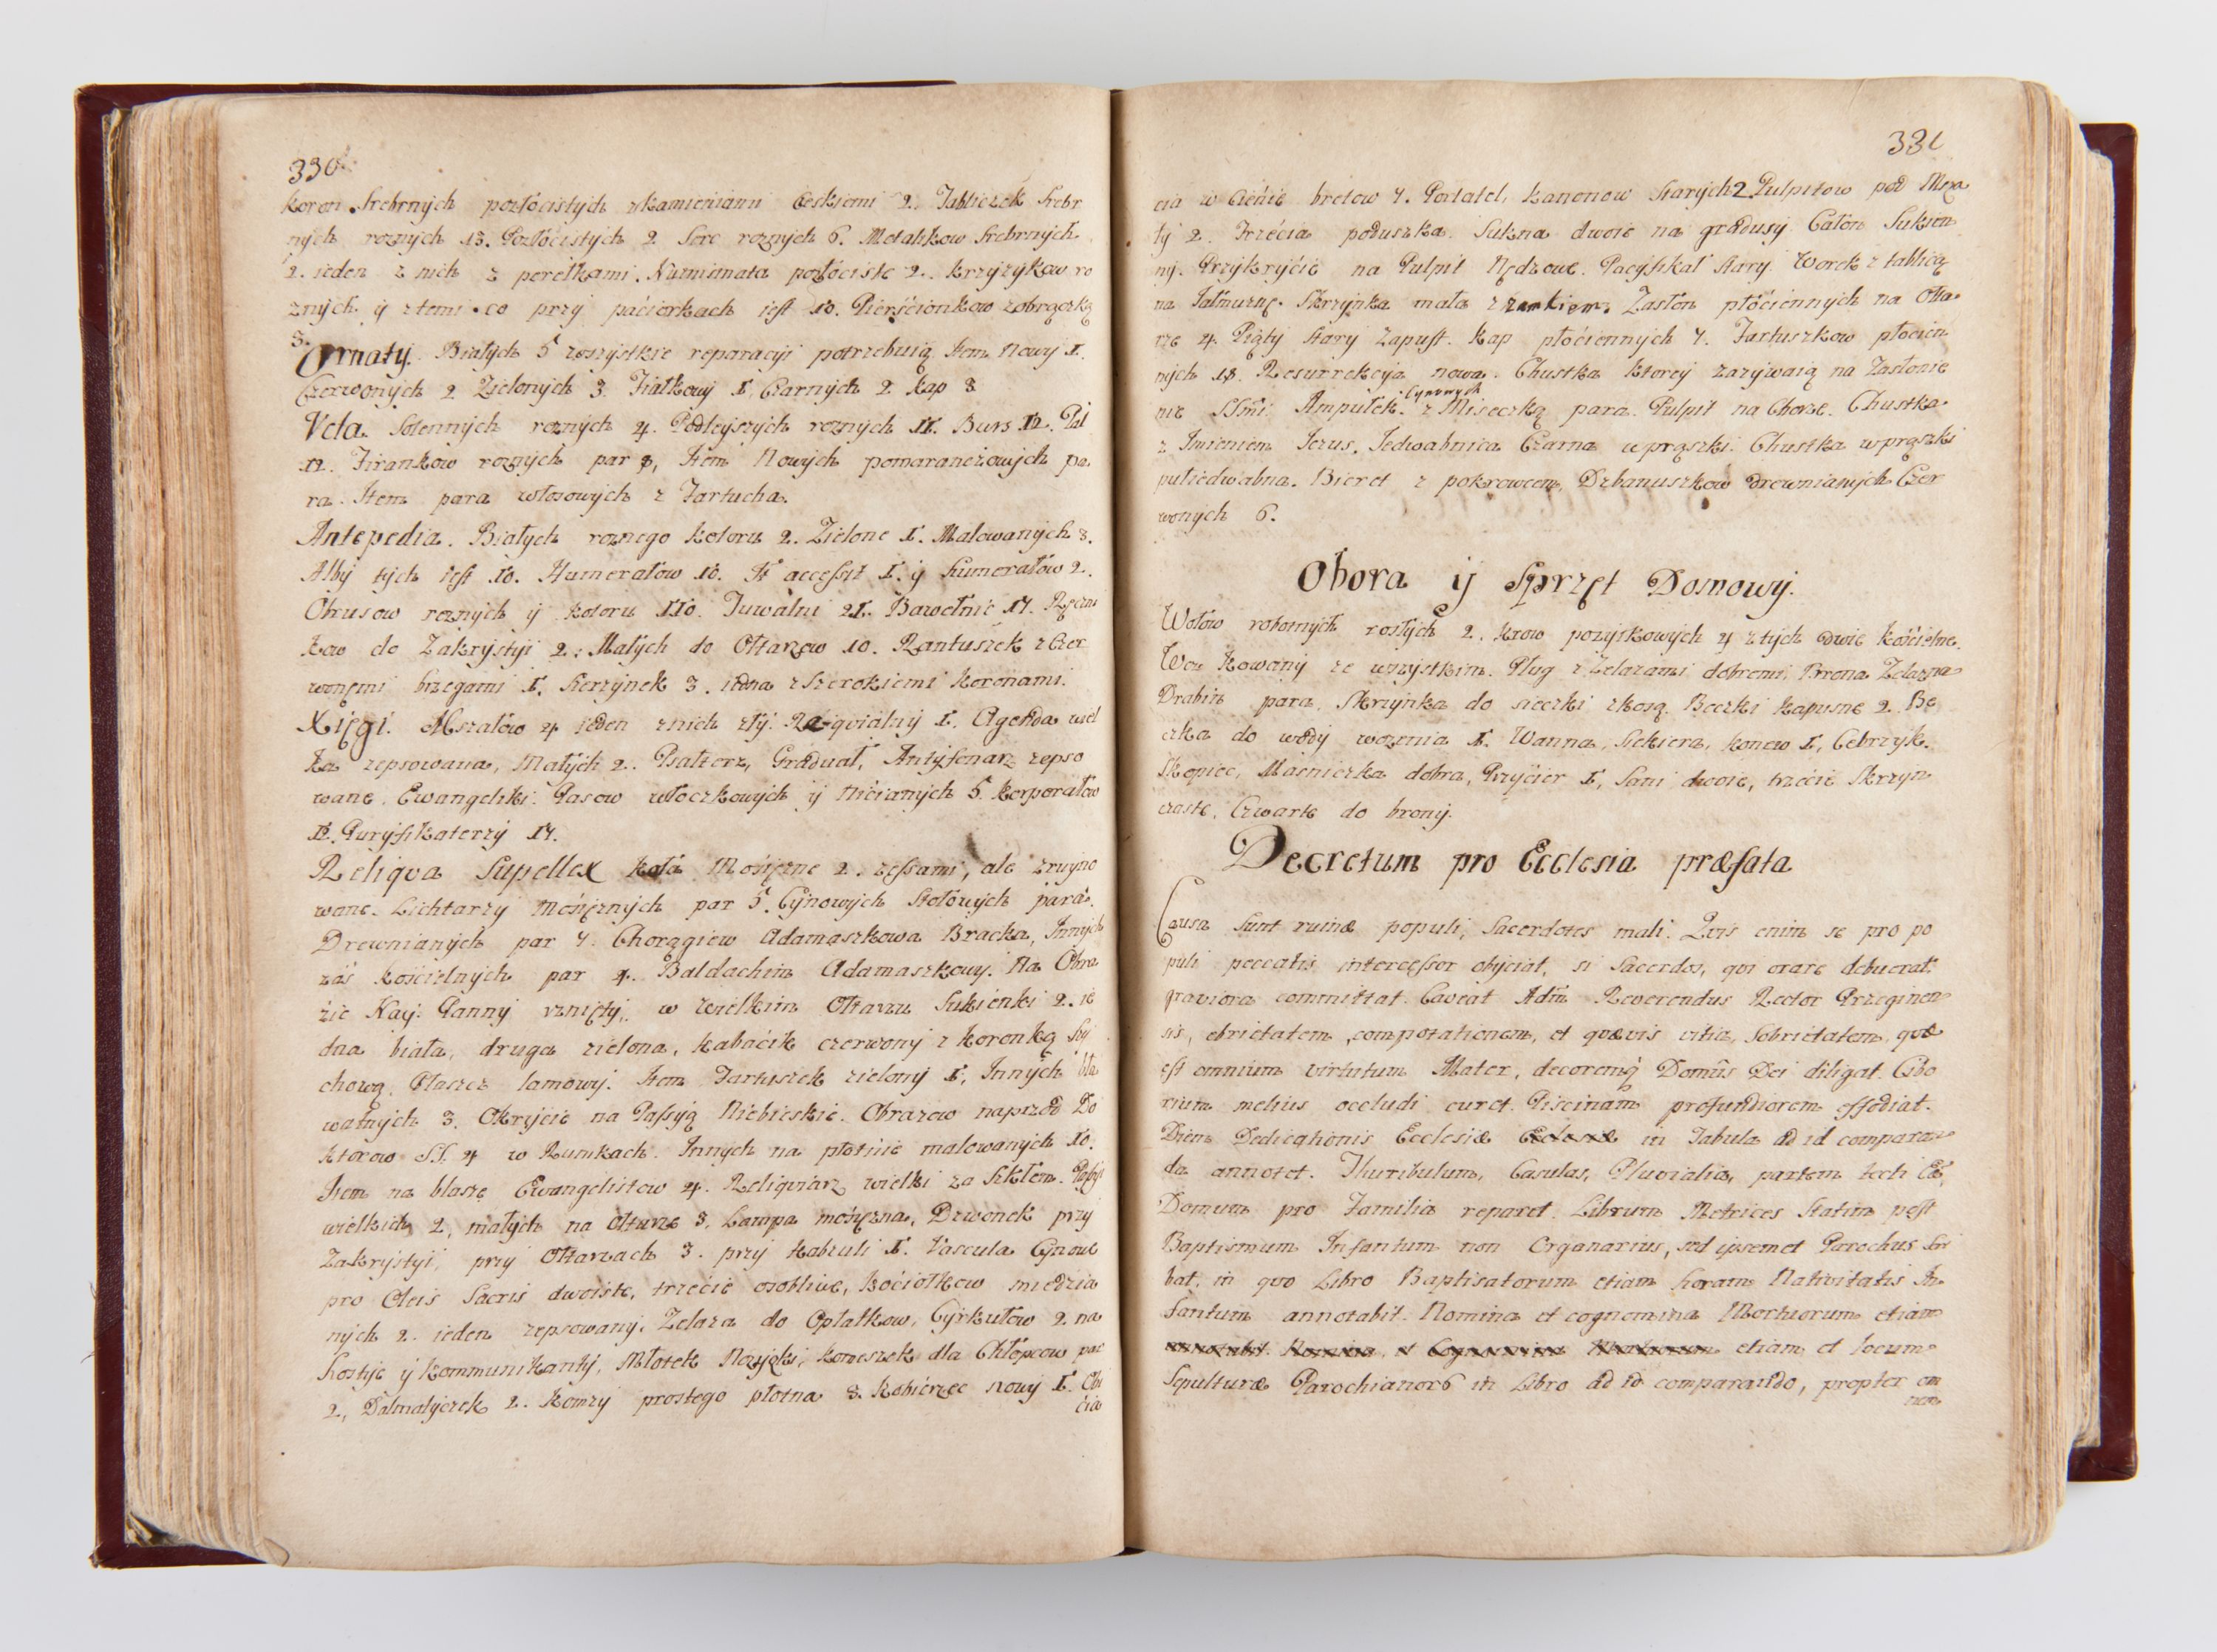 330
koron Srebrnych pozłocistych zkamieniami Czeskiemi 2. Tabliczek Srebr
nych roznych 13. Pozłocistych 2 Serc roznych 6. Metalikow Srebrnych
2. ieden z nich z perełkami. Numismata pozłociste 2. krzyzykow ro
znych y ztemi co przy paciorkach iest 10. Pierscionkow zobrączką
3.
Ornaty. Białych 5 wszystkie reparacyi potrzebuią Item Nowy I.
Czerwonych 2 Zielonych 3. Fiałkowy I, Czarnych 2 kap 3
Vela. Solennych roznych 4. Podleyszych roznych II. Burs 12. Pal
12. Firankow roznych par 8, Item Nowych pomaranczowych pa
ra. Item para włosowych z Fartucha.
Antepedia. Białych roznego koloru 2. Zielone I. Malowanych 8.
Alby tych iest 10. Humerałow 10. It accessit I. y humerałow 2.
Obrusow roznych y koloru II0. Tuwalni 2I. Bawełnic 17. Ręczni
kow do Zakrystyi 2. Małych do Ołtarzow 10. Rantuszek z Czer
wonemi brzegami I. Sierzynek 3. iedna z Szerokiemi koronami.
Xięgi. Mszałow 4 ieden znich zły. Reqvialny I. Agenda wiel
ka zepsowana, Małych 2. Psałterz, Graduał, Antyfonarz zepso
wane. Ewangeliki. Pasow włoczkowych y Nicianych 5. korporałow
12. Puryfikaterzy 17.
Reliqva Supellex koła Mosięzne 2. zessami, ale zruyno
wane. Lichtarzy Mosięznych par 5. Cynowych Stołowych para.
Drewnianych par 7. Chorągiew Adamaszkowa Bracka, Innych
zas koscielnych par 4. Baldachim Adamaszkowy. Na Obra
zie Nay: Panny wzniętey, w wielkim Ołtarzu Sukienki 2. ie
dna biała, druga zielona, kabacik czerwony z koronką Sy
chową. Płaszcz lamowy. Item Fartuszek zielony I, Innych bła
watnych 3. Okrycie na Passyą Niebieskie. Obrazow naprzod Do
ktorow SS. 4 w Ramkach. Innych na płotnie malowanych 10.
Item na blasze Ewangelistow 4. Reliqviarz wielki za Szkłem. Passyi
wielkich 2, małych na ołtarze 3. Lampa mosięzna, Dzwonek przy
Zakrystyi, przy Ołtarzach 3. przy kabzuli I. Vascula Cynowe
pro Oleis Sacris dwoiste, trzecie osobliwe, kociołkow miedzia
nych 2. ieden zepsowany, Zelaza do Opłatkow, Cyrkułow 2 na
hostye y kommunikanty, Młotek Nozyczki, komeszek dla Chłopcow par
2, Dalmatyczek 2. komzy prostego płotna 8. kobierzec nowy I. Obi
cia
331
cia w Ciencie bretow 7. Portatel, kanonow Starych 2 Pulpitow pod Msza
ły 2. Trzecia poduszka. Sukna dwoie na gradusy Całon Sukien
ny. Przykrycie na Pulpit Nędzowe. Pacyfikał Stary. Worek z tablicą
na Jałmuznę. Skrzynka mała z zamkiem, Zasłon płociennych na Ołta
rze 4. Piąty Stary Zapust. kap płociennych 7. Fartuszkow płocien
nych 18. Resurrekcya nowa. Chustka ktorey zazywaią na Zasłonie
Cynowych
nie SSmi. Ampułek z Miseczką para. Pulpit na Chorze. Chustka
z Imieniem Jezus. Jedwabnica Czarna wprązki. Chustka wprązki
pułiedwabna. Biret z pokrowcem, Dzbanuszkow drewnianych Czer
wonych 6.
Obora y Sprzęt Domowy.
Wołow robotnych rosłych 2. krow pozyskowych 4 ztych dwie koscielne.
Woz kowany ze wszystkim. Pług z Zelazami dobremi, Brona Zelazna
Drabin para, Skrzynka do sieczki zkosą. Beczki kapusne 2. Be
czka do wody wozenia I. Wanna, Siekiera, konew I, Cebrzyk.
Skopiec, Masniczka dobra, Przycier I, Sani dwoie, trzecie Skrzyn
czaste, Czwarte do brony.
Decretum pro Ecclesia præfata
Causa Sunt ruinæ populi, Sacerdotes mali. Qvis enim se pro po
puli peccatis intercessor obijciat, si Sacerdos, qvi orare debuerat
graviora committat. Caveat Adm Reverendus Rector Przeginen
sis, ebrietatem, compotationem, et qvævis vitia, Sobrietatem, qvæ
est omnium virtutum Mater, decoremq Domus Dei diligat. Cibo
rium melius occludi curet. Piscinam profundiorem effodiat.
Diem Dedicationis Ecclesiæ Ecclesiæ in Tabula ad id comparan
da annotet. Thuribulum, Casulas, Pluvialia, partem tecti Eæ,
Domum pro Familia reparet. Librum Metrices Statim post
Baptismum Infantum non Organarius, sed ipsemet Parochus Scri
bat, in qvo Libro Baptisatorum etiam horam Nativitatis In
fantum annotabit. Nomina et cognomina Mortuorum etiam
annotabit. Nomina et Cognomina Mortuorum etiam et locum
Sepulturæ Parochianorũ in Libro ad id comparando, propter om
nem